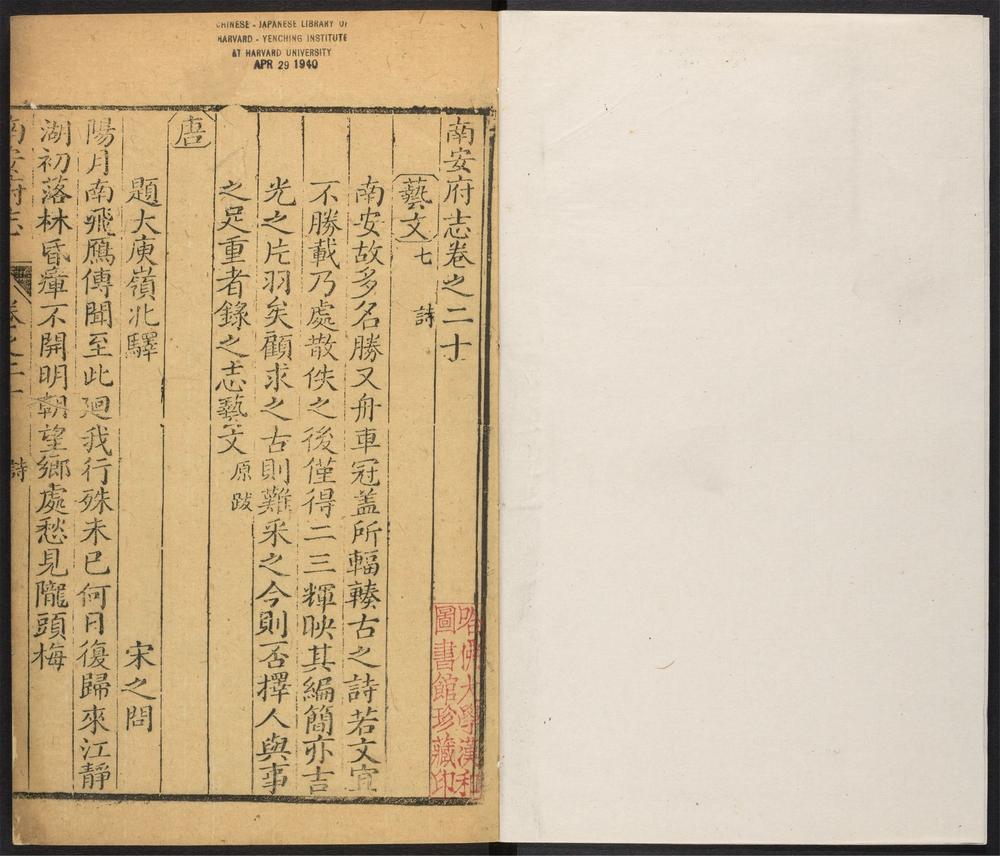 CHINESE - JAPANESE LIBRARY OF
HARVARD - YENCHING INSTITUTE
AT HARVARD UNIVERSITY
APR 29 1940
南安府志卷之二十
藝文七 詩
南安故多名勝又舟車冠盖所輻輳古之詩若文宜
不勝載乃處散佚之後僅得二三輝映其編簡亦吉
光之片羽矣顧求之古則難采之今則否擇人與事
之足重者錄之志藝文原跋
唐
題大庾嶺北驛 宋之問
陽月南飛鴈傳聞至此廻我行殊未已何日復歸來江靜
湖初落林昏瘴不開明朝望鄉處愁見隴頭梅
南安府志 卷之二十 詩
哈佛大學漢和
圖書館珍藏印